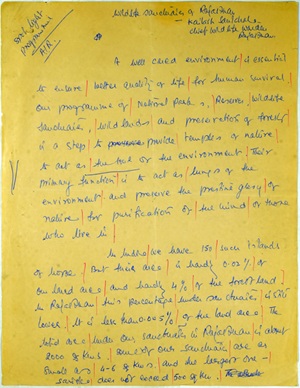 Wildlife sanctuaries of Rajasthan
Kailash Sankhala
Chief Wildlife Warden
Rajasthan
spot light
programme
AIR
A well cared environment is essential
to ensure better quality of life for human survival
Our programme of National Parks, Reserves, Wildlife
Sanctuaries, wild lands and preservation of forests
is a step to provide temples of nature
to act as the of the environment. Their
primary function is to act as lungs of the
environment and preserve the pristine glory of
nature for purification of the mind of those
who live in
In India we have 150 such islands
of hope. But their area is hardly 0.02% of
our land area and hardly 4% of the forest land.
In Rajasthan this percentage under sanctuaries is still
lower. It is less than 0.005% of the land area. The
total area under our sanctuaries in Rajasthan is about
2000 sq kms. Some of our sanctuaries are as
small as 4-6 sq kms and the largest one
does not exceed 500 sq km.